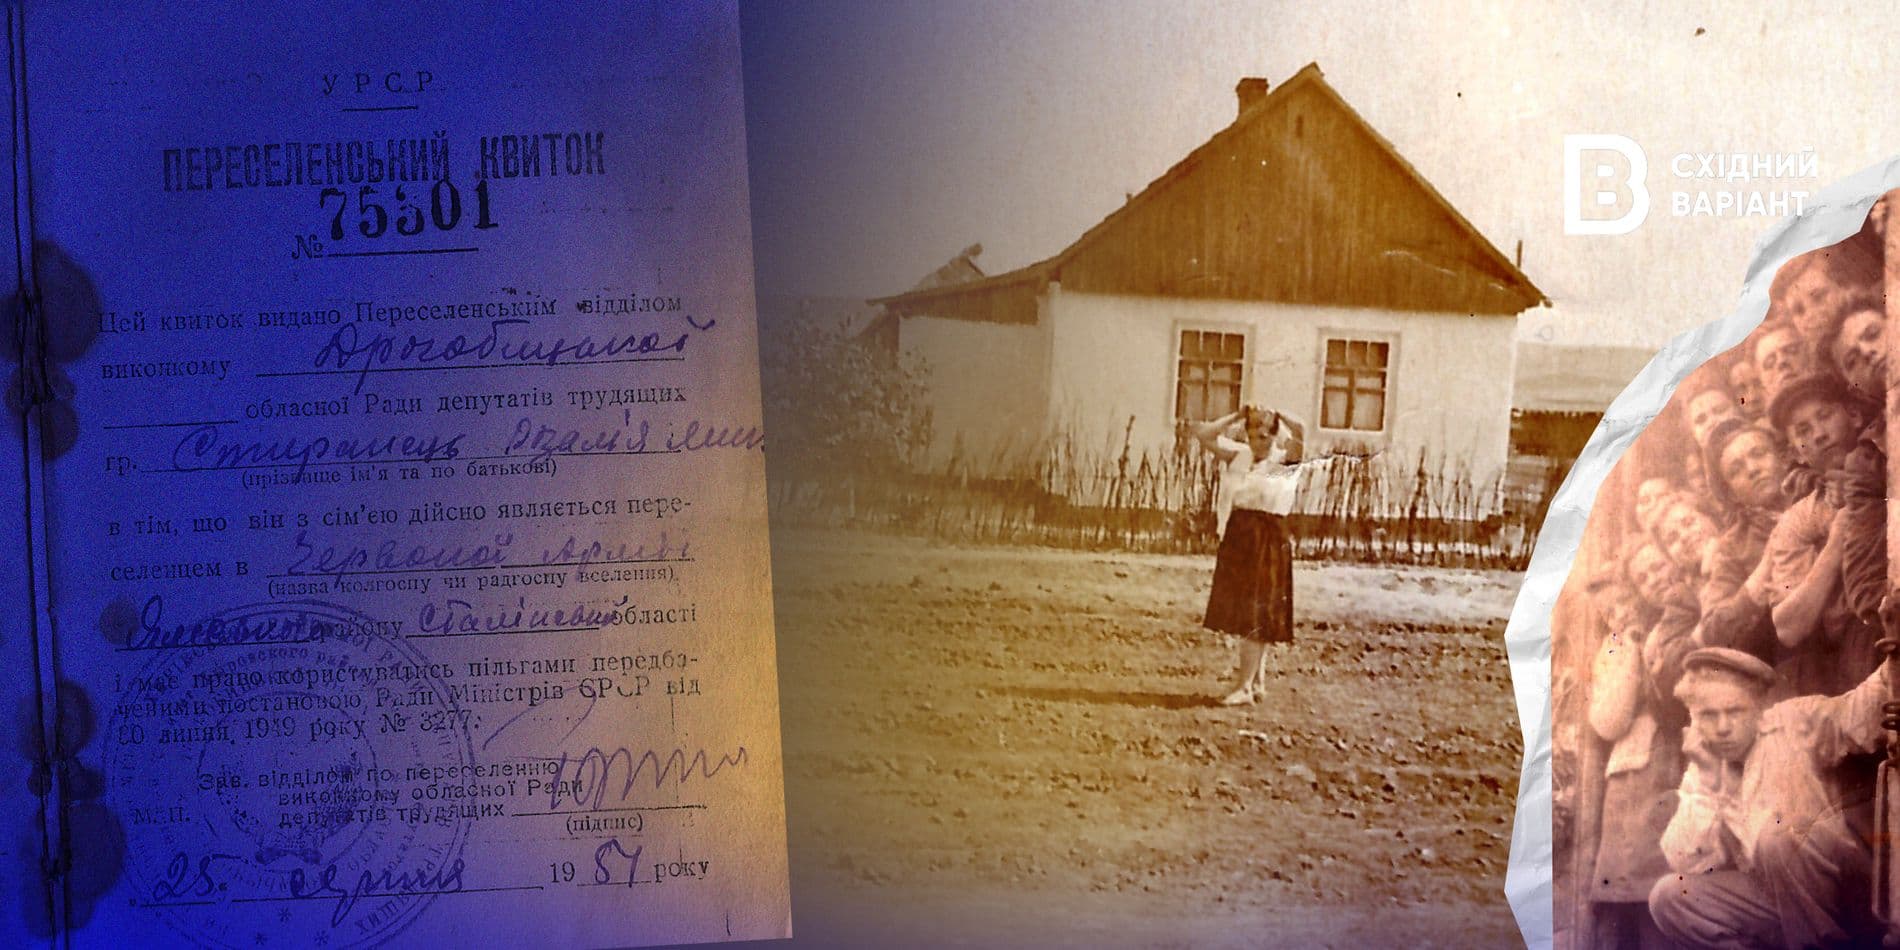 УРСР
ПЕРЕСЕЛЕНСЬКИЙ КВИТОК
№ 75301
Цей квиток видано Переселенським відділом
виконкому Дрогобицької
обласної Ради депутатів трудящих
гр. Стиранець
(прізвище ім'я та по батькові)
в тім, що він з сім'єю дійсно являється пере-
селенцем в Червоної Армії
(назва колгоспу чи радгоспу вселення)
району Сталінській області
і має право користуватись пільгами передба-
ченими постановою Ради Міністрів СРСР від
20 липня 1949 року № 3277.
Зав. відділом по переселенню
виконкому обласної Ради
депутатів трудящих
М. П.
(підпис)
25. серпня 1951 року
СХІДНИЙ
ВАРІАНТ